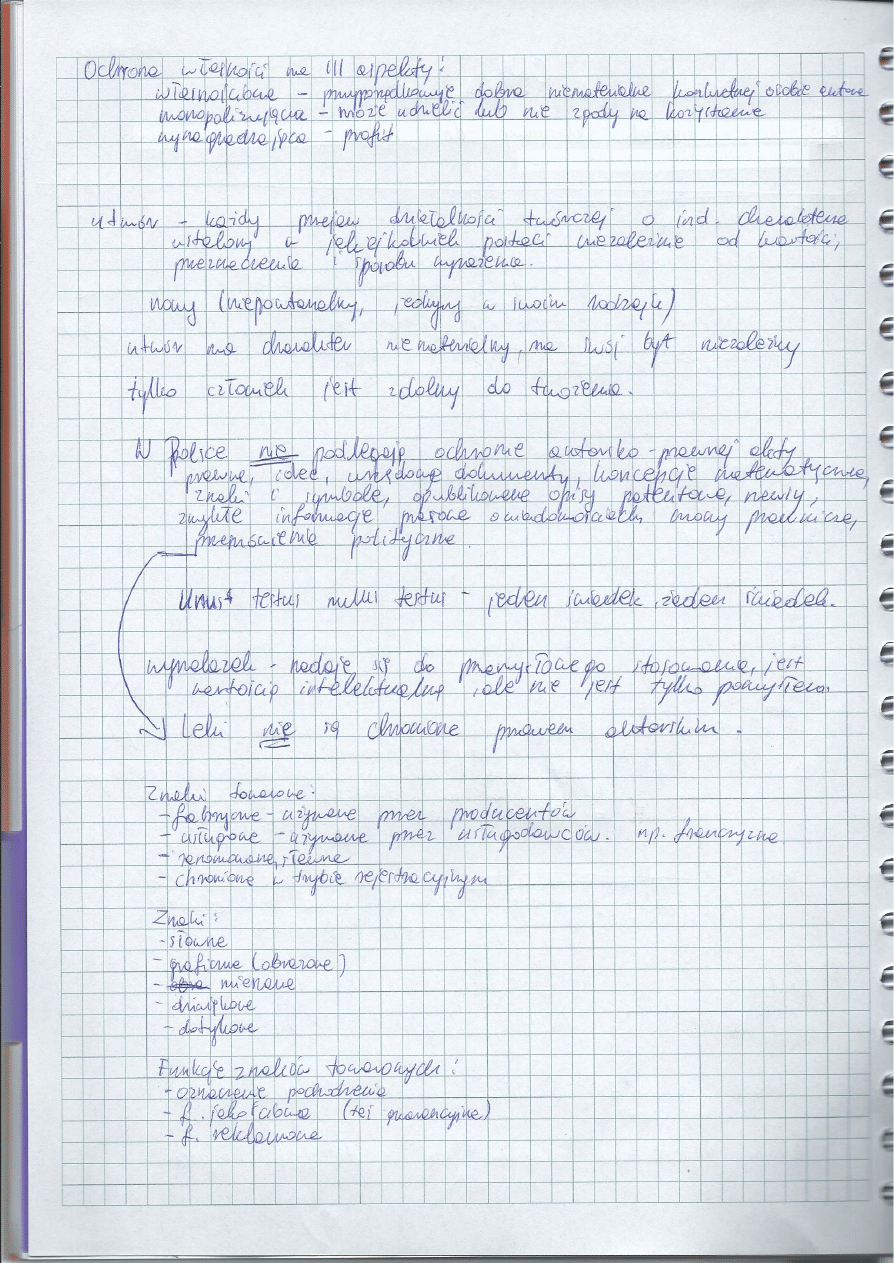 Ochrona własności ma III aspekty:
własnościowe – przyporządkowuje dobra niematerialne konkretnej osobie autora
monopolizująca – może udzielić lub nie zgody na korzystanie
wynagradzająca – profit
utwór – każdy przejaw działalności twórczej o ind. charakterze
ustalony w jakiejkolwiek postaci niezależnie od wartości,
przeznaczenia i sposobu wyrażenia.
nowy (niepowtarzalny, jedyny w swoim rodzaju)
utwór ma charakter niematerialny, ma swój byt niezależny
tylko człowiek jest zdolny do tworzenia.
W Polsce nie podlegają ochronie autorsko-prawnej akty
prawne, idee, urzędowe dokumenty, koncepcje matematyczne,
znaki i symbole, opublikowane opisy patentowe, newsy,
zwykłe informacje prasowe o wiadomościach, mowy prawnicze,
przemówienia polityczne.
Unus testus nullus testus – jeden świadek, żaden świadek.
wynalazek – nadaje się do przemysłowego stosowania, jest
wartością intelektualną, ale nie jest tylko pomysłem.
Leki nie są chronione prawem autorskim.
Znaki towarowe:
- fabryczne – używane przez producentów
- usługowe – używane przez usługodawców. np. franczyzna
- renomowane, sławne
- chronione w trybie rejestracyjnym
Znaki:
- słowne
- graficzne (obrazowe)
- mieszane
- dźwiękowe
- dotykowe
Funkcje znaków towarowych:
- oznaczenie pochodzenia
- f. jakościowa (też gwarancyjna)
- f. reklamowa